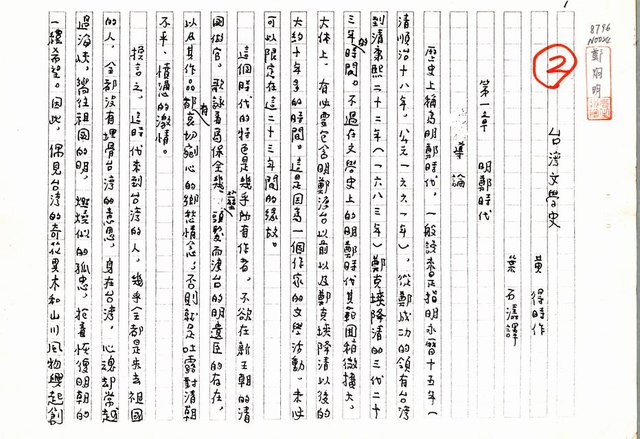 1
8796
鄭烱明
②
台湾文學史
黃得時作
葉石濤譯
第一章 明鄭時代
導論
歷史上稱為明鄭時代，一般說來是指明永曆十五年（
清順治十八年，公元一六六一年），從鄭成功的領有台湾
到清康熙二十二年（一六八三年）鄭克塽降清的三代二十
三年的時間。不過在文學史上的明鄭時代其範囲稍微擴大，
大体上，有必要包含明鄭治台以前以及鄭克塽降清以後的
大約十年多的時間。這是因為一個作家的文學活動，未必
可以限定在這二十三年間的緣故。
這個時代的特色是幾乎所有作者，不欲在新王朝的清
國做官。歌詠着為保全幾莖頭髮而渡台的明遺臣的存在，
以及其作品都有哀切宛心的鄉愁情念，否則就是吐露對清朝
不平、憤懣的激情。
換言之，這時代來到台湾的人，幾乎全都是失去祖國
的人，全都沒有埋骨台湾的意思，身在台湾，心魂却常越
過海峽，嚮往祖國的明，燃燒似的孤忠，抱着恢復明朝的
一縷希望。因此，偶見台湾的奇花異木和山川風物縷起創